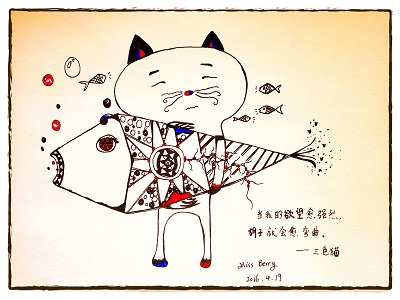 当我的欲望愈强烈，
胡子就会愈弯曲。
——三色猫
Miss Berry.
2016.9.19